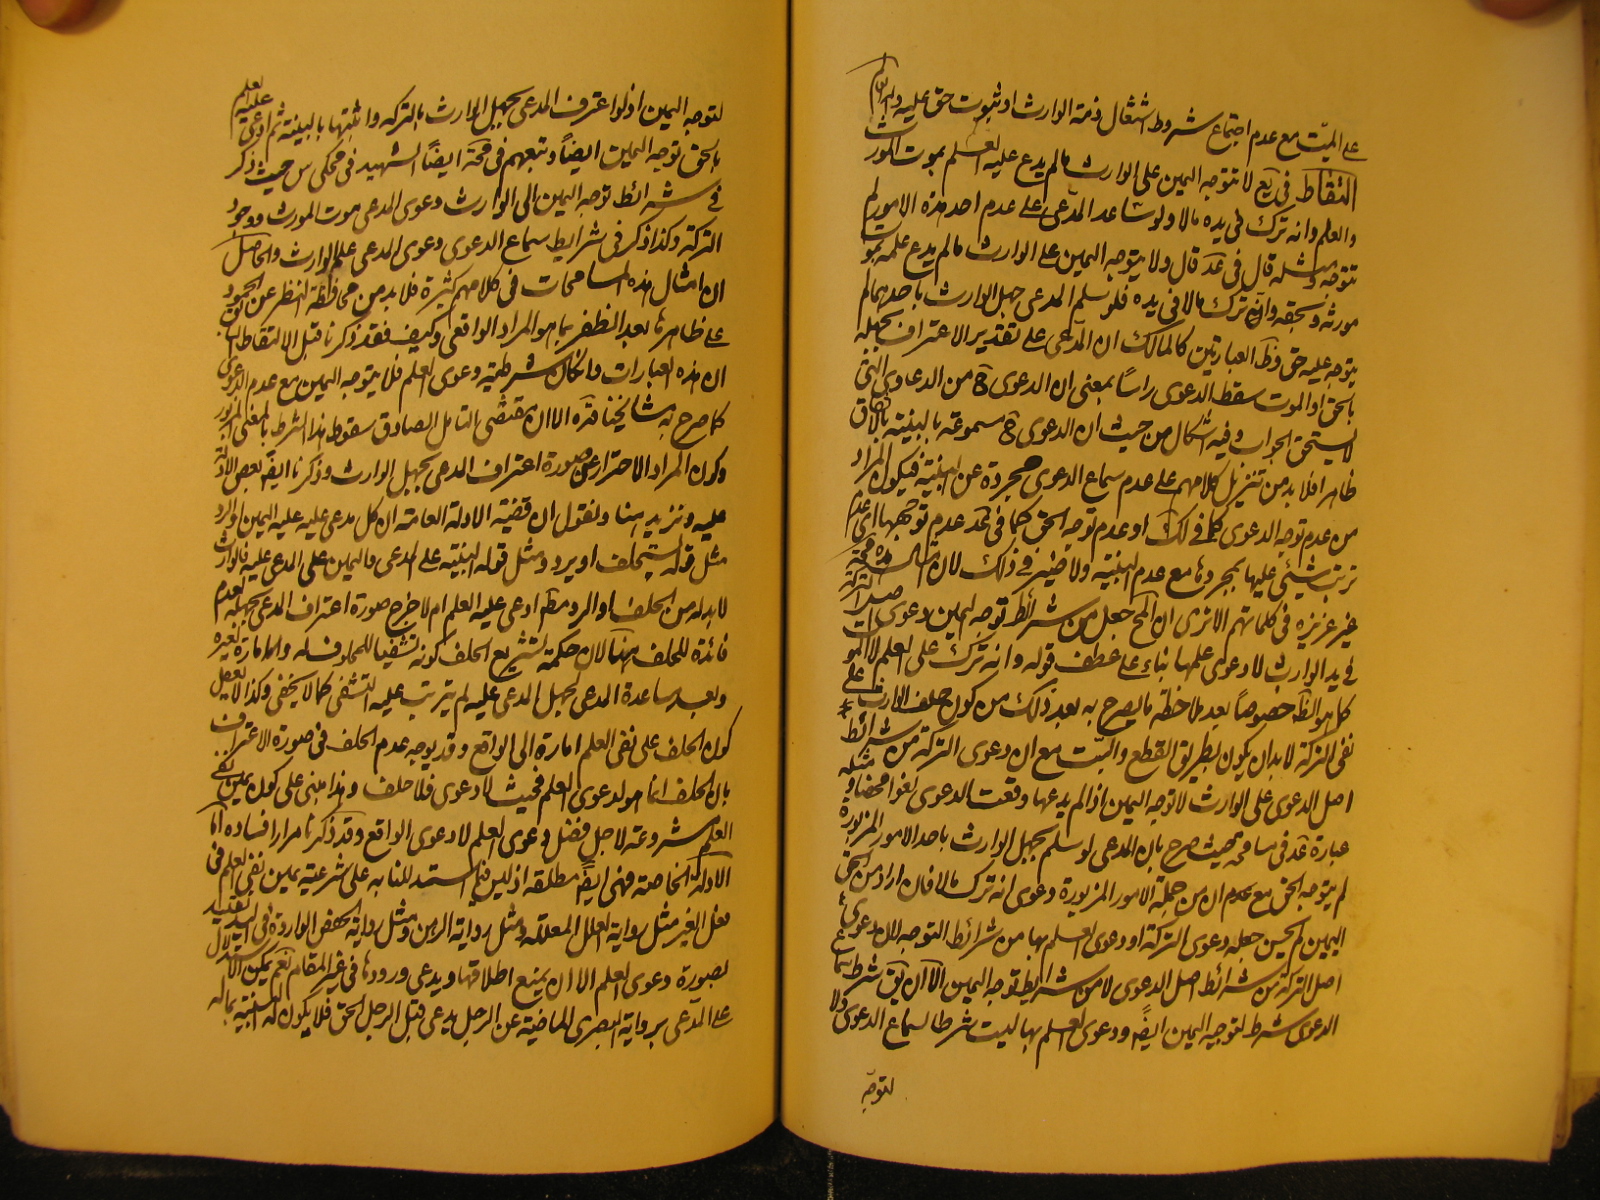 على الميّت مع عدم اجتماع شروط اشتغال ذمة الوارث او ثبوت حق عليه
التقاط في يع لا تتوجه اليمين على الوارث ما لم يدع عليه العلم بموت المورث
والعلم وانه ترك في يده مالا ولو ساعد المدعى على عدم احد هذه الامور لم
تتوجه ومثله قال في عد قال ولا يتوجه اليمين على الوارث ما لم يدع علمه بموت
مورثه وبحقه وانه ترك مالا في يده فلو سلم المدعى جهل الوارث باحدهما لم
يتوجه عليه حق وظ العبارتين كالمالك ان المدعى على تقدير الاعتراف بجهله
بالحق او الموت سقط الدعوى راسًا بمعنى ان الدعوى ح من الدعاوى التى
لا يستحق الجواب وفيه اشكال من حيث ان الدعوى ح مسموعة بالبينة بالاتفاق
ظاهرا فلا بد من تنزيل كلامهم على عدم سماع الدعوى مجردة عن البينة فيكون المراد
من عدم توجه الدعوى كما في لك او عدم توجه الحق كما في عد عدم توجهها اى عدم
ترتب شيئ عليها بمجردها مع عدم البينة ولا ضير في ذلك لان المسامحة
غير عزيزه في كلماتهم الا ترى ان المح جعل من شرائط توجه اليمين دعوى
في يد الوارث لا دعوى علمها بناء على عطف قوله وانه ترك على العلم لا الموت
كما هو الظ خصوصًا بعد ملاحظة ما يصرح به بعد ذلك من كون حلف الوارث على
نفى التركة لا بد ان يكون بطريق القطع والبتّ مع ان دعوى التركة من شرائط
اصل الدعوى على الوارث لا توجه اليمين اذ لم يدعها وقعت الدعوى لغوا محضا و مثله
عبارة عد في مسامحة حيث صرح بان المدعى لو سلم بجهل الوارث باحد الامور المزبورة
لم يتوجه الحق مع عدم ان من جملة الامور المزبورة دعوى انه ترك مالا فان اراد من الحق
اليمين لم يحسن جعله دعوى التركة او دعوى العلم بها من شرائط التوجه لان دعوى
اصل التركة من شرائط اصل الدعوى لا من شرايط توجه اليمين الا ان يق شرط سماع
الدعوى شرط لتوجيه اليمين ايضًا ودعوى العلم بها ليست شرطا لسماع الدعوى ولا
لتوجّه
لتوجه اليمين اذ لو اعترف المدعى بجهل الوارث بالتركه واثبتها بالبينة ثم ادعى عليه العلم
بالحق توجه اليمين ايضاً وتبعهم في محة ايضًا الشهيد في محكى س حيث ذكر
في شرائط توجه اليمين الى الوارث دعوى المدعى موت المورث ووجود
التركة وكذا ذكر في شرايط سماع الدعوى دعوى المدعى علم الوارث والحاصل
ان امثال هذه المسامحات في كلامهم كثيرة فلا بد من محافظة النظر عن الجمود
على ظاهرها بعد الظفر بما هو المراد الواقعى وكيف فقد ذكرنا قبل الالتقاط
ان هذه العبارات وان كان شرطيته دعوى العلم فلا يتوجه اليمين مع عدم الدعوى
كما صرح به مشايخنا قده الا ان مقتضى التامل الصادق سقوط هذا الشرط بالمعنى المزبور
وكون المراد الاحتراز عن صورة اعتراف المدعى بجهل الوارث وذكرنا ايضًا بعض الادلة
عليه ونزيد هنا ونقول ان قضية الادلة العامة ان كل مدعى عليه عليه اليمين او الرد
مثل قوله يستحلف او يرد ومثل قوله البينة على المدعى واليمين على المدعى عليه فالوارث
لا بد له من الحلف او الرد مط ادعى عليه العلم ام لا خرج صورة اعتراف المدعى بجهله لعدم
فائدة للحلف هنا لان حكمة تشريع الحلف كونه تشفيا للمحلوف له واما مارة لغيره
وبعد مساعدة المدعى لجهل المدعى عليه لم يترتب عليه التشفى كما لا يخفى وكذا لا يعقل
كون الحلف على نفى العلم امارة الى الواقع وقد يوجه عدم الحلف في صورة الاعتراف
بان الحلف انما هو لدعوى العلم فحيث لا دعوى فلا حلف وهذا مبنى على كون يمين نفى
العلم مشروعة لاجل فصل دعوى العلم لا دعوى الواقع وقد ذكرنا مرارا فساده اما
الادلة الخاصة فهى ايضًا مطلقه اذ ليس فيما استدللنا به على شرعية يمين نفى العلم في
فعل الغير مثل رواية العلل المعللة ومثل رواية الرهن ومثل رواية الحفص الواردة في اليد تقييد
بصورة دعوى العلم الا ان يمنع اطلاقها ويدعى ورودها في غير المقام نعم يمكن الاستدلال
على المدعى برواية البصرى الماضية عن الرجل يدعى قبل الرجل الحق فلا يكون له البينة بماله